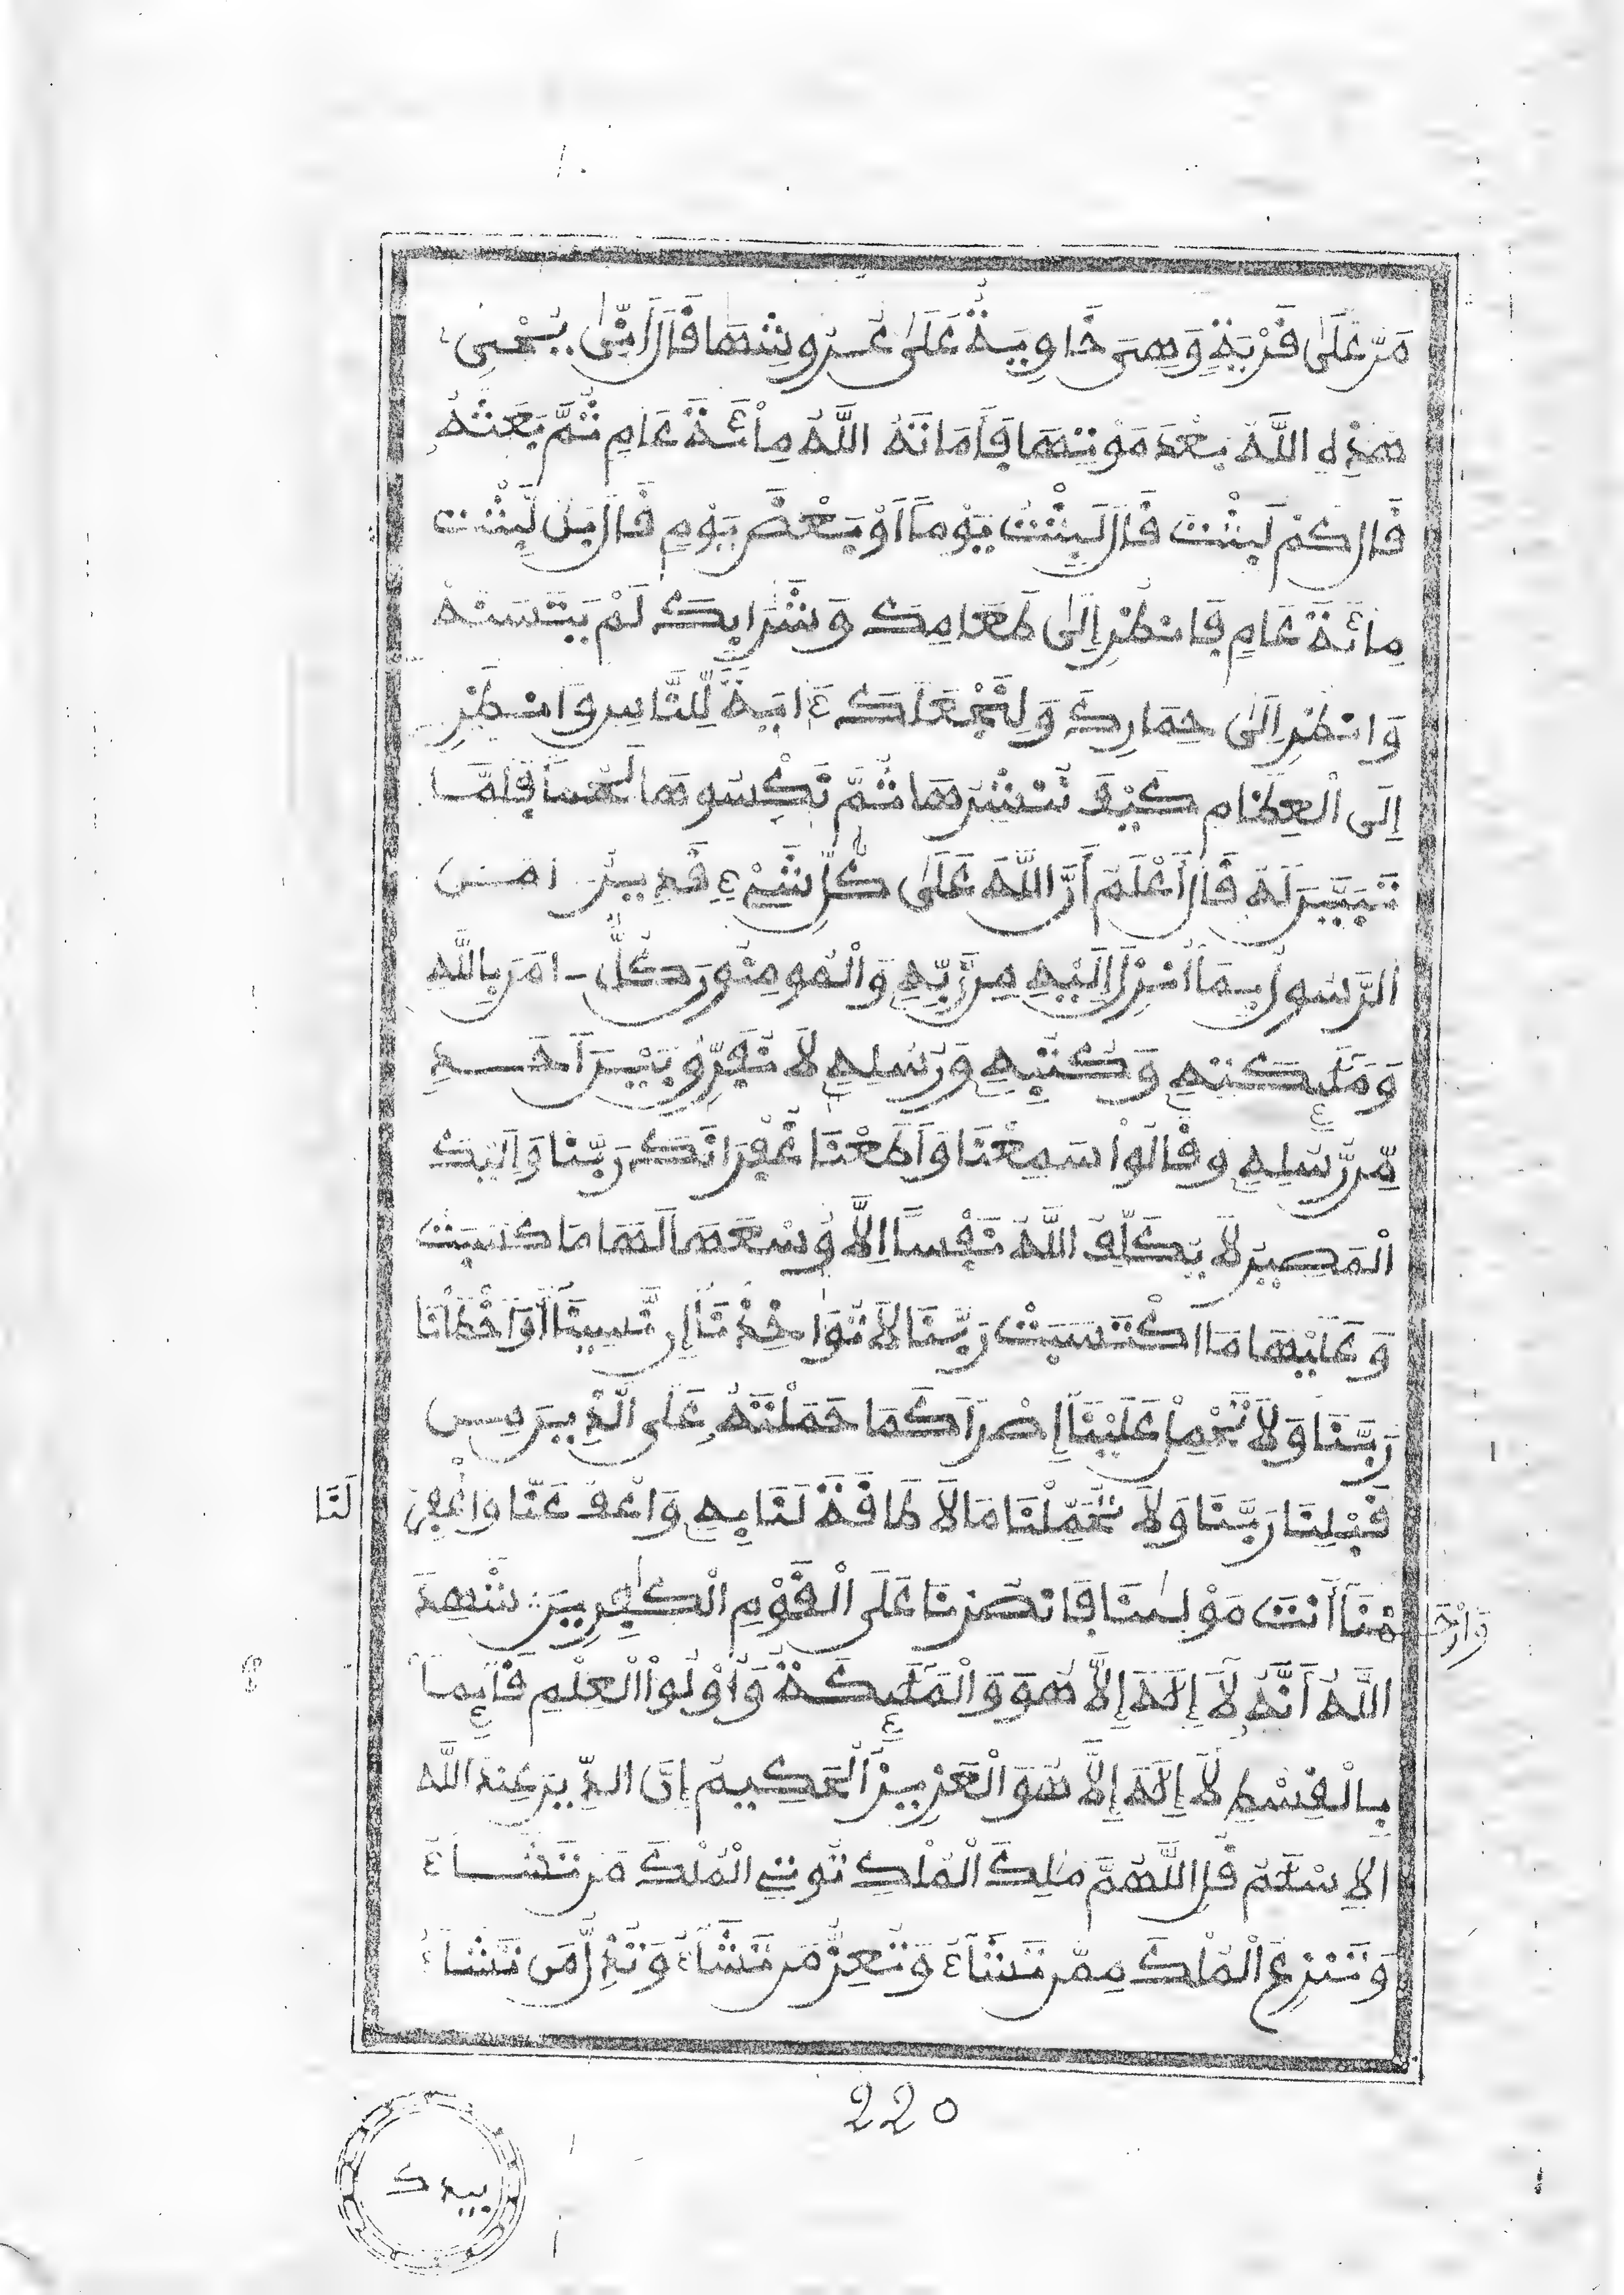 مَرَّ عَلَىٰ قَرْيَةٍ وَهِىَ خَاوِيَةٌ عَلَىٰ عُرُوشِهَا قَالَ أَنّٰى يُحْىِ
هَٰذِهِ اللَّهُ بَعْدَ مَوْتِهَا فَأَمَاتَهُ اللَّهُ مِاْئَةَ عَامٍ ثُمَّ بَعَثَهُ
قَالَ كَمْ لَبِثْتَ قَالَ لَبِثْتُ يَوْماً اَوْ بَعْضَ يَوْمٍ قَالَ بَل لَّبِثْتَ
مِائَةَ عَامٍ فَانظُرِ اِلَىٰ طَعَامِكَ وَشَرَابِكَ لَمْ يَتَسَنَّهْ
وَانظُرِ اِلَىٰ حِمَارِكَ وَلِنَجْعَلَكَ ءَايَةً لِّلنَّاسِ وَانظُرِ
إِلَى اْلْعِظَامِ كَيْفَ نُنشِرُهَا ثُمَّ نَكْسُوهَا لَحْماً فَلَمَّا
تَبَيَّنَ لَهُ قَالَ أَعْلَمُ أَنَّ اللَّهَ عَلَىٰ كُلِّ شَيْءٍ قَدِيرٌ امَنَ
اَلرَّسُولُ بِمَا أُنزِلَ إِلَيْهِ مِن رَّبِّهِ وَالْمُومِنُونَ كُلٌّ - امَنَ بِاللَّهِ
وَمَلَٰئِكَتِهِ وَكُتُبِهِ وَرُسُلِهِ لَا نُفَرِّقُ بَيْنَ أَحَدٍ
مِّن رُّسُلِهِ وَقَالُواْ سَمِعْنَا وَأَطَعْنَا غُفْرَانَكَ رَبَّنَا وَإِلَيْكَ
اَلْمَصِيرُ لَا يُكَلِّفُ اللَّهُ نَفْساً اِلَّا وُسْعَهَا لَهَا مَا كَسَبَتْ
وَعَلَيْهَا مَا اَكْتَسَبَتْ رَبَّنَا لَا تُوَاخِذْنَا إِن نَّسِينَا أَوَ اَخْطَأْنَا
رَبَّنَا وَلَا تَحْمِلْ عَلَيْنَا إِصْراً كَمَا حَمَلْتَهُ عَلَى الَّذِينَ مِن
قَبْلِنَا رَبَّنَا وَلَا تُحَمِّلْنَا مَا لَا طَاقَةَ لَنَا بِهِ وَاعْفُ عَنَّا وَاغْفِرْ لَنَا
وَارْحَمْنَا أَنتَ مَوْلَىٰنَا فَانصُرْنَا عَلَى اَلْقَوْمِ الْكَٰفِرِينَ شَهِدَ
اَللَّهُ أَنَّهُ لَا إِلَٰهَ إِلَّا هُوَ وَالْمَلَٰئِكَةُ وَأُوْلُواْ الْعِلْمِ قَائِماً
بِالْقِسْطِ لَا إِلَٰهَ إِلَّا هُوَ الْعَزِيزُ الْحَكِيمُ إِنَّ الدِّينَ عِندَ اللَّهِ
الِاسْلَٰمُ قُلِ اللَّهُمَّ مَٰلِكَ الْمُلْكِ تُوتِي الْمُلْكَ مَن تَشَاءُ
وَتَنزِعُ الْمُلْكَ مِمَّن تَشَاءُ وَتُعِزُّ مَن تَشَاءُ وَتُذِلُّ مَن تَشَاءُ
220